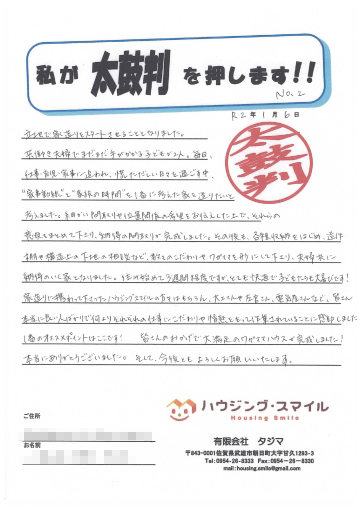 私が 太鼓判 を押します!!
No.2
R2年1月6日
太鼓判
で家造りをスタートさせることとなりました。
共働き夫婦でまだまだ手がかかる子どもが2人。毎日、
仕事・育児・家事に追われ、慌ただしい日々を過ごす中、
"家事動線"と"家族の時間"を1番に考えた家を造りたいと
考えました。細かい間取りや位置関係の希望をお伝えした上で、それらの
要望をまとめて下さり、納得の間取りが完成しました。その後も、各種収納をはじめ、造作
棚や構造上の下地の相談など、私たちのこだわりやわがままを形にして下さり、夫婦共に
納得のいく家となりました。住み始めて3週間程度ですが、とても快適で子どもたちも大喜びです!
家造りに携わって下さったハウジングスマイルの方々はもちろん、大工さんや左官さん、電気屋さんなど、皆さん
本当に良い人ばかりで何よりそれぞれの仕事にこだわりや情熱をもって作業されていることに感動しました
1番のオススメポイントはここです! 皆さんのおかげで大満足のわがままハウスが完成しました!
本当にありがとうございました。そして、今後ともよろしくお願いいたします。
ハウジング・スマイル
Housing Smile
ご住所
お名前
有限会社 タジマ
〒843-0001佐賀県武雄市朝日町大字甘久1293-3
Tel:0954-26-8333 Fax:0954-26-8330
mail:housing.smile@gmail.com